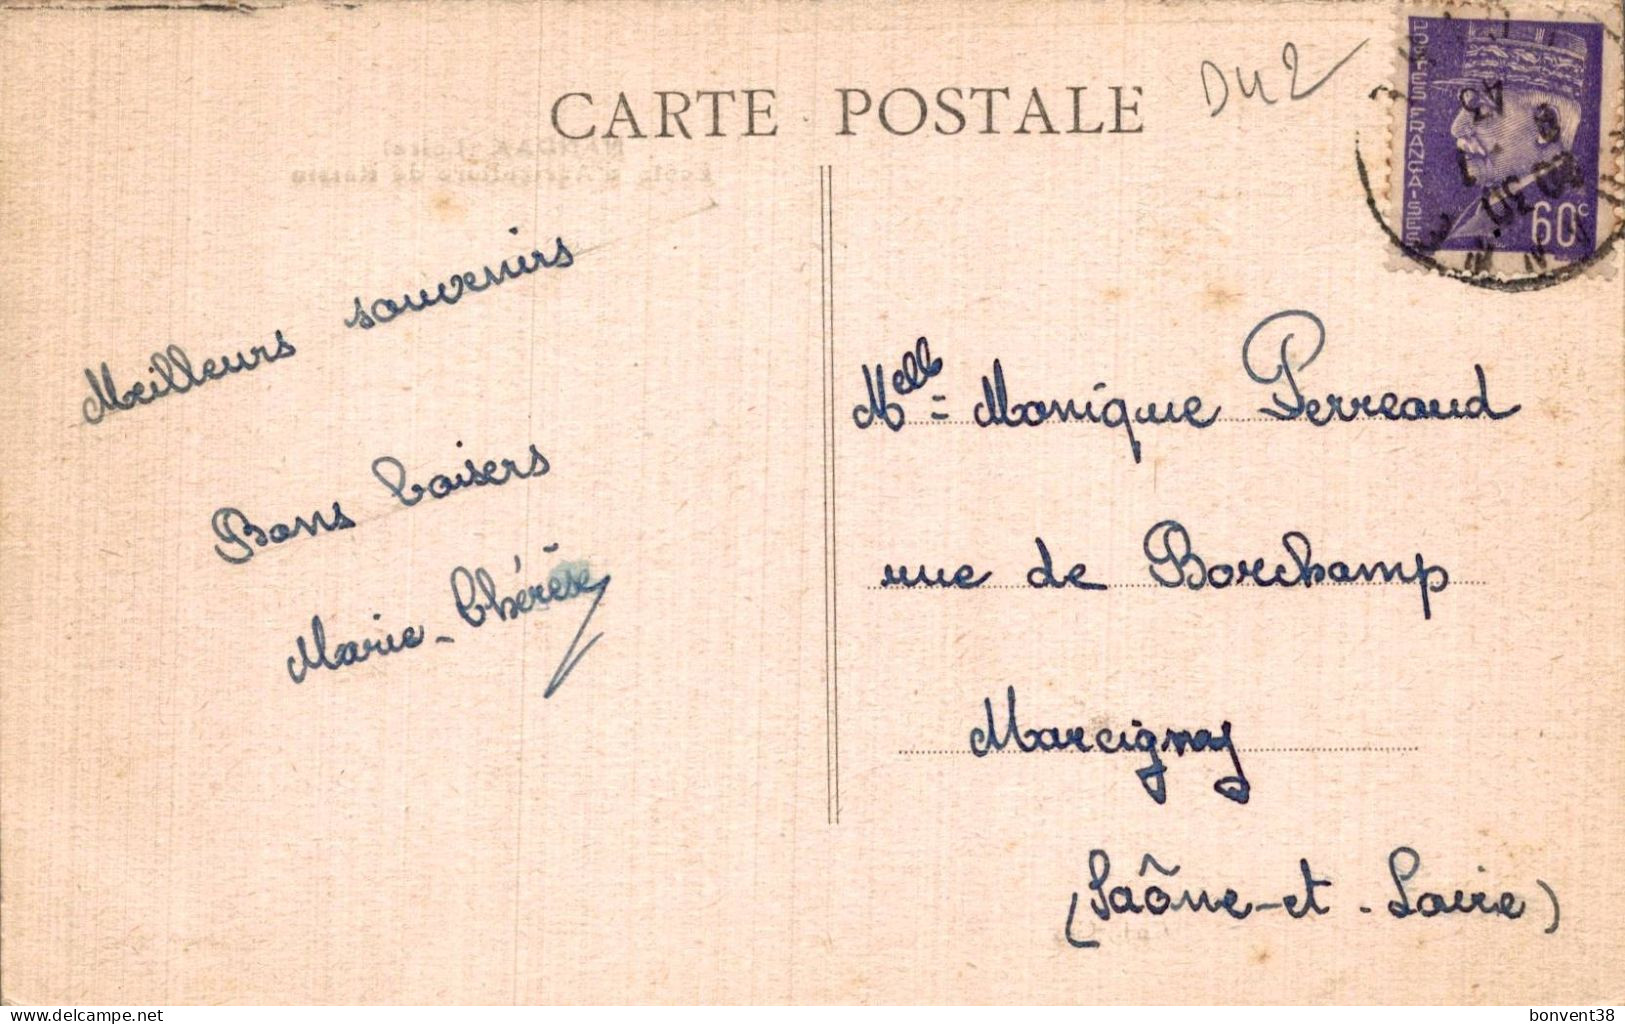 CARTE POSTALE
D42
POSTES FRANÇAISES
60c
43
Meilleurs souvenirs
Bons baisers
Marie-Thérèse
Melle = Monique Perreaud
rue de Borchamp
Marcigny
(Saône-et-Loire)
www.delcampe.net
bonvent38